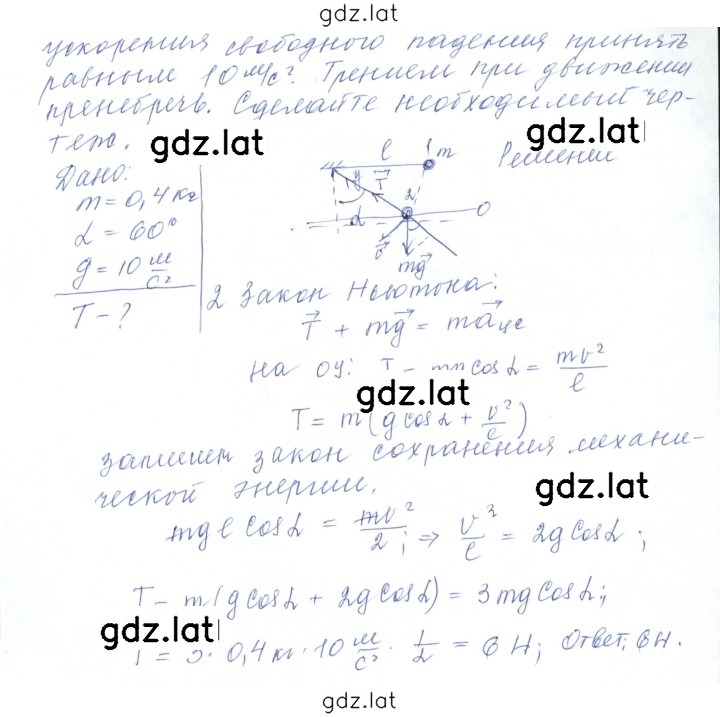 gdz.lat
ускорения свободного падения принять
равным 10 м/с². Трением при движении
пренебречь. Сделайте необходимый чер-
теж.
gdz.lat
gdz.lat
Дано:
m = 0,4 кг
α = 60°
g = 10 м/с²
T - ?
Решение
l
1
m
y
T
α
2
O
v
mg
2 Закон Ньютона:
T + mg = maцс
на оу: T - mg cos α = mv²/l
gdz.lat
T = m(g cos α + v²/l)
запишем закон сохранения механи-
ческой энергии.
gdz.lat
mgl cos α = mv²/2; ⇒ v²/l = 2g cos α;
T = m(g cos α + 2g cos α) = 3mg cos α;
gdz.lat
T = 3 · 0,4 кг · 10 м/с² · 1/2 = 6 Н; Ответ: 6 Н.
gdz.lat